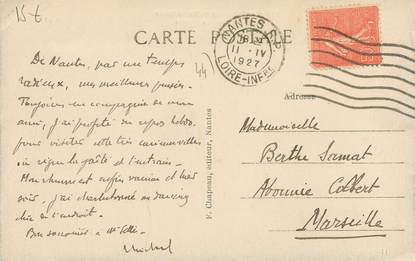 15 €
CARTE POSTALE
NANTES R.P.
11 - IV
1927
LOIRE-INFRE
44
De Nantes, par un temps
radieux, mes meilleures pensées.
Toujours en compagnie de mon
ami, j'ai profité du repos hebdo.
pour visiter cette très curieuse ville
où règne la gaîté et l'entrain.
soir. j'ai au dancing
chic en l'endroit.
Bon souvenir à
Michel
F. Chapeau, éditeur, Nantes
Adresse
Mademoiselle
Berthe Samat
Abonnée Colbert
Marseille